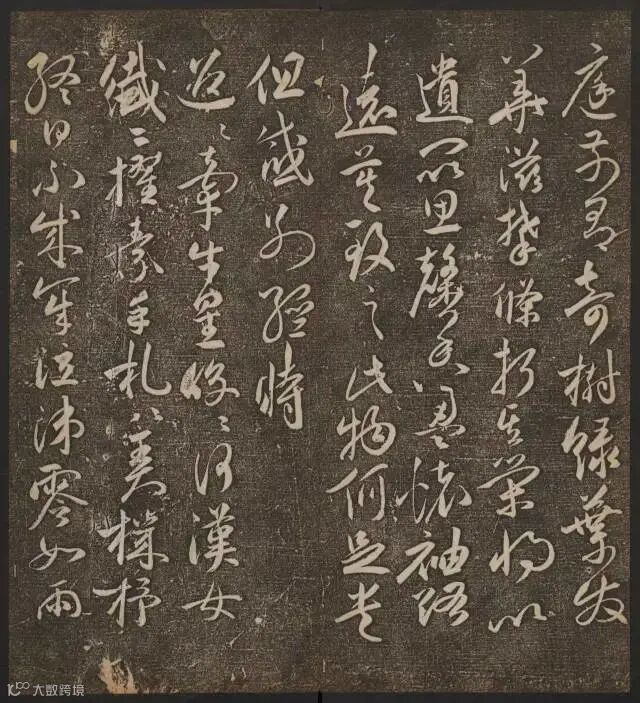 庭前有奇樹綠葉發
華滋攀條折其榮將以
遺所思馨香盈懷袖路
遠莫致之此物何足貴
但感別經時
迢〻牽牛星皎〻河漢女
纖〻擢素手札〻弄機杼
終日不成章泣涕零如雨
大数跨境